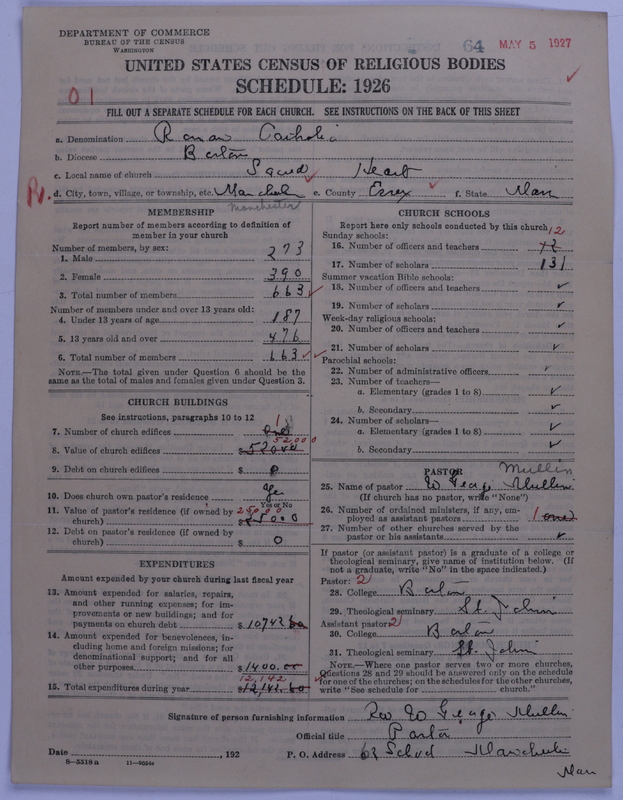 DEPARTMENT OF COMMERCE
BUREAU OF THE CENSUS
WASHINGTON
64 MAY 5 1927
UNITED STATES CENSUS OF RELIGIOUS BODIES
SCHEDULE: 1926
01
FILL OUT A SEPARATE SCHEDULE FOR EACH CHURCH. SEE INSTRUCTIONS ON THE BACK OF THIS SHEET
a. Denomination Roman Catholic
b. Diocese Boston
c. Local name of church Sacred Heart
d. City, town, village, or township, etc. Manchester e. County Essex f. State Mass
Manchester
MEMBERSHIP
Report number of members according to definition of
member in your church
Number of members, by sex:
1. Male 273
2. Female 390
3. Total number of members 663
Number of members under and over 13 years old:
4. Under 13 years of age 187
5. 13 years old and over 476
6. Total number of members 663
NOTE.—The total given under Question 6 should be
same as the total of males and females given under Question 3.
CHURCH BUILDINGS
See instructions, paragraphs 10 to 12
7. Number of church edifices one 1
52000
8. Value of church edifices $52000
9. Debt on church edifices $ 0
10. Does church own pastor's residence yes
Yes or No
11. Value of pastor's residence (if owned by
church) $25000
12. Debt on pastor's residence (if owned by
church) $ 0
EXPENDITURES
Amount expended by your church during last fiscal year
13. Amount expended for salaries, repairs,
and other running expenses; for im-
provements or new buildings; and for
payments on church debt $10742.60
14. Amount expended for benevolences, in-
cluding home and foreign missions; for
denominational support; and for all
other purposes $1400.00
12,142
15. Total expenditures during year $12,142.60
CHURCH SCHOOLS
Report here only schools conducted by this church
Sunday schools: 12
16. Number of officers and teachers 12
17. Number of scholars 131
Summer vacation Bible schools:
18. Number of officers and teachers ✓
19. Number of scholars ✓
Week-day religious schools:
20. Number of officers and teachers ✓
21. Number of scholars ✓
Parochial schools:
22. Number of administrative officers ✓
23. Number of teachers—
a. Elementary (grades 1 to 8) ✓
b. Secondary ✓
24. Number of scholars—
a. Elementary (grades 1 to 8) ✓
b. Secondary ✓
PASTOR Mullin
25. Name of pastor W George Mullin
(If church has no pastor, write "None")
26. Number of ordained ministers, if any, em-
ployed as assistant pastors 1 one
27. Number of other churches served by the
pastor or his assistants ✓
If pastor (or assistant pastor) is a graduate of a college or
theological seminary, give name of institution below. (If
not a graduate, write "No" in the space indicated.)
Pastor: 2
28. College Boston
29. Theological seminary St. Johns
Assistant pastor: 2
30. College Boston
31. Theological seminary St. Johns
NOTE.—Where one pastor serves two or more churches,
Questions 28 and 29 should be answered only on the schedule
for one of the churches; on the schedules for the other churches,
write "See schedule for church."
Signature of person furnishing information Rev W George Mullin
Official title Pastor
Date , 192 P. O. Address 62 School Manchester
Mass
8—5318a 11—9054